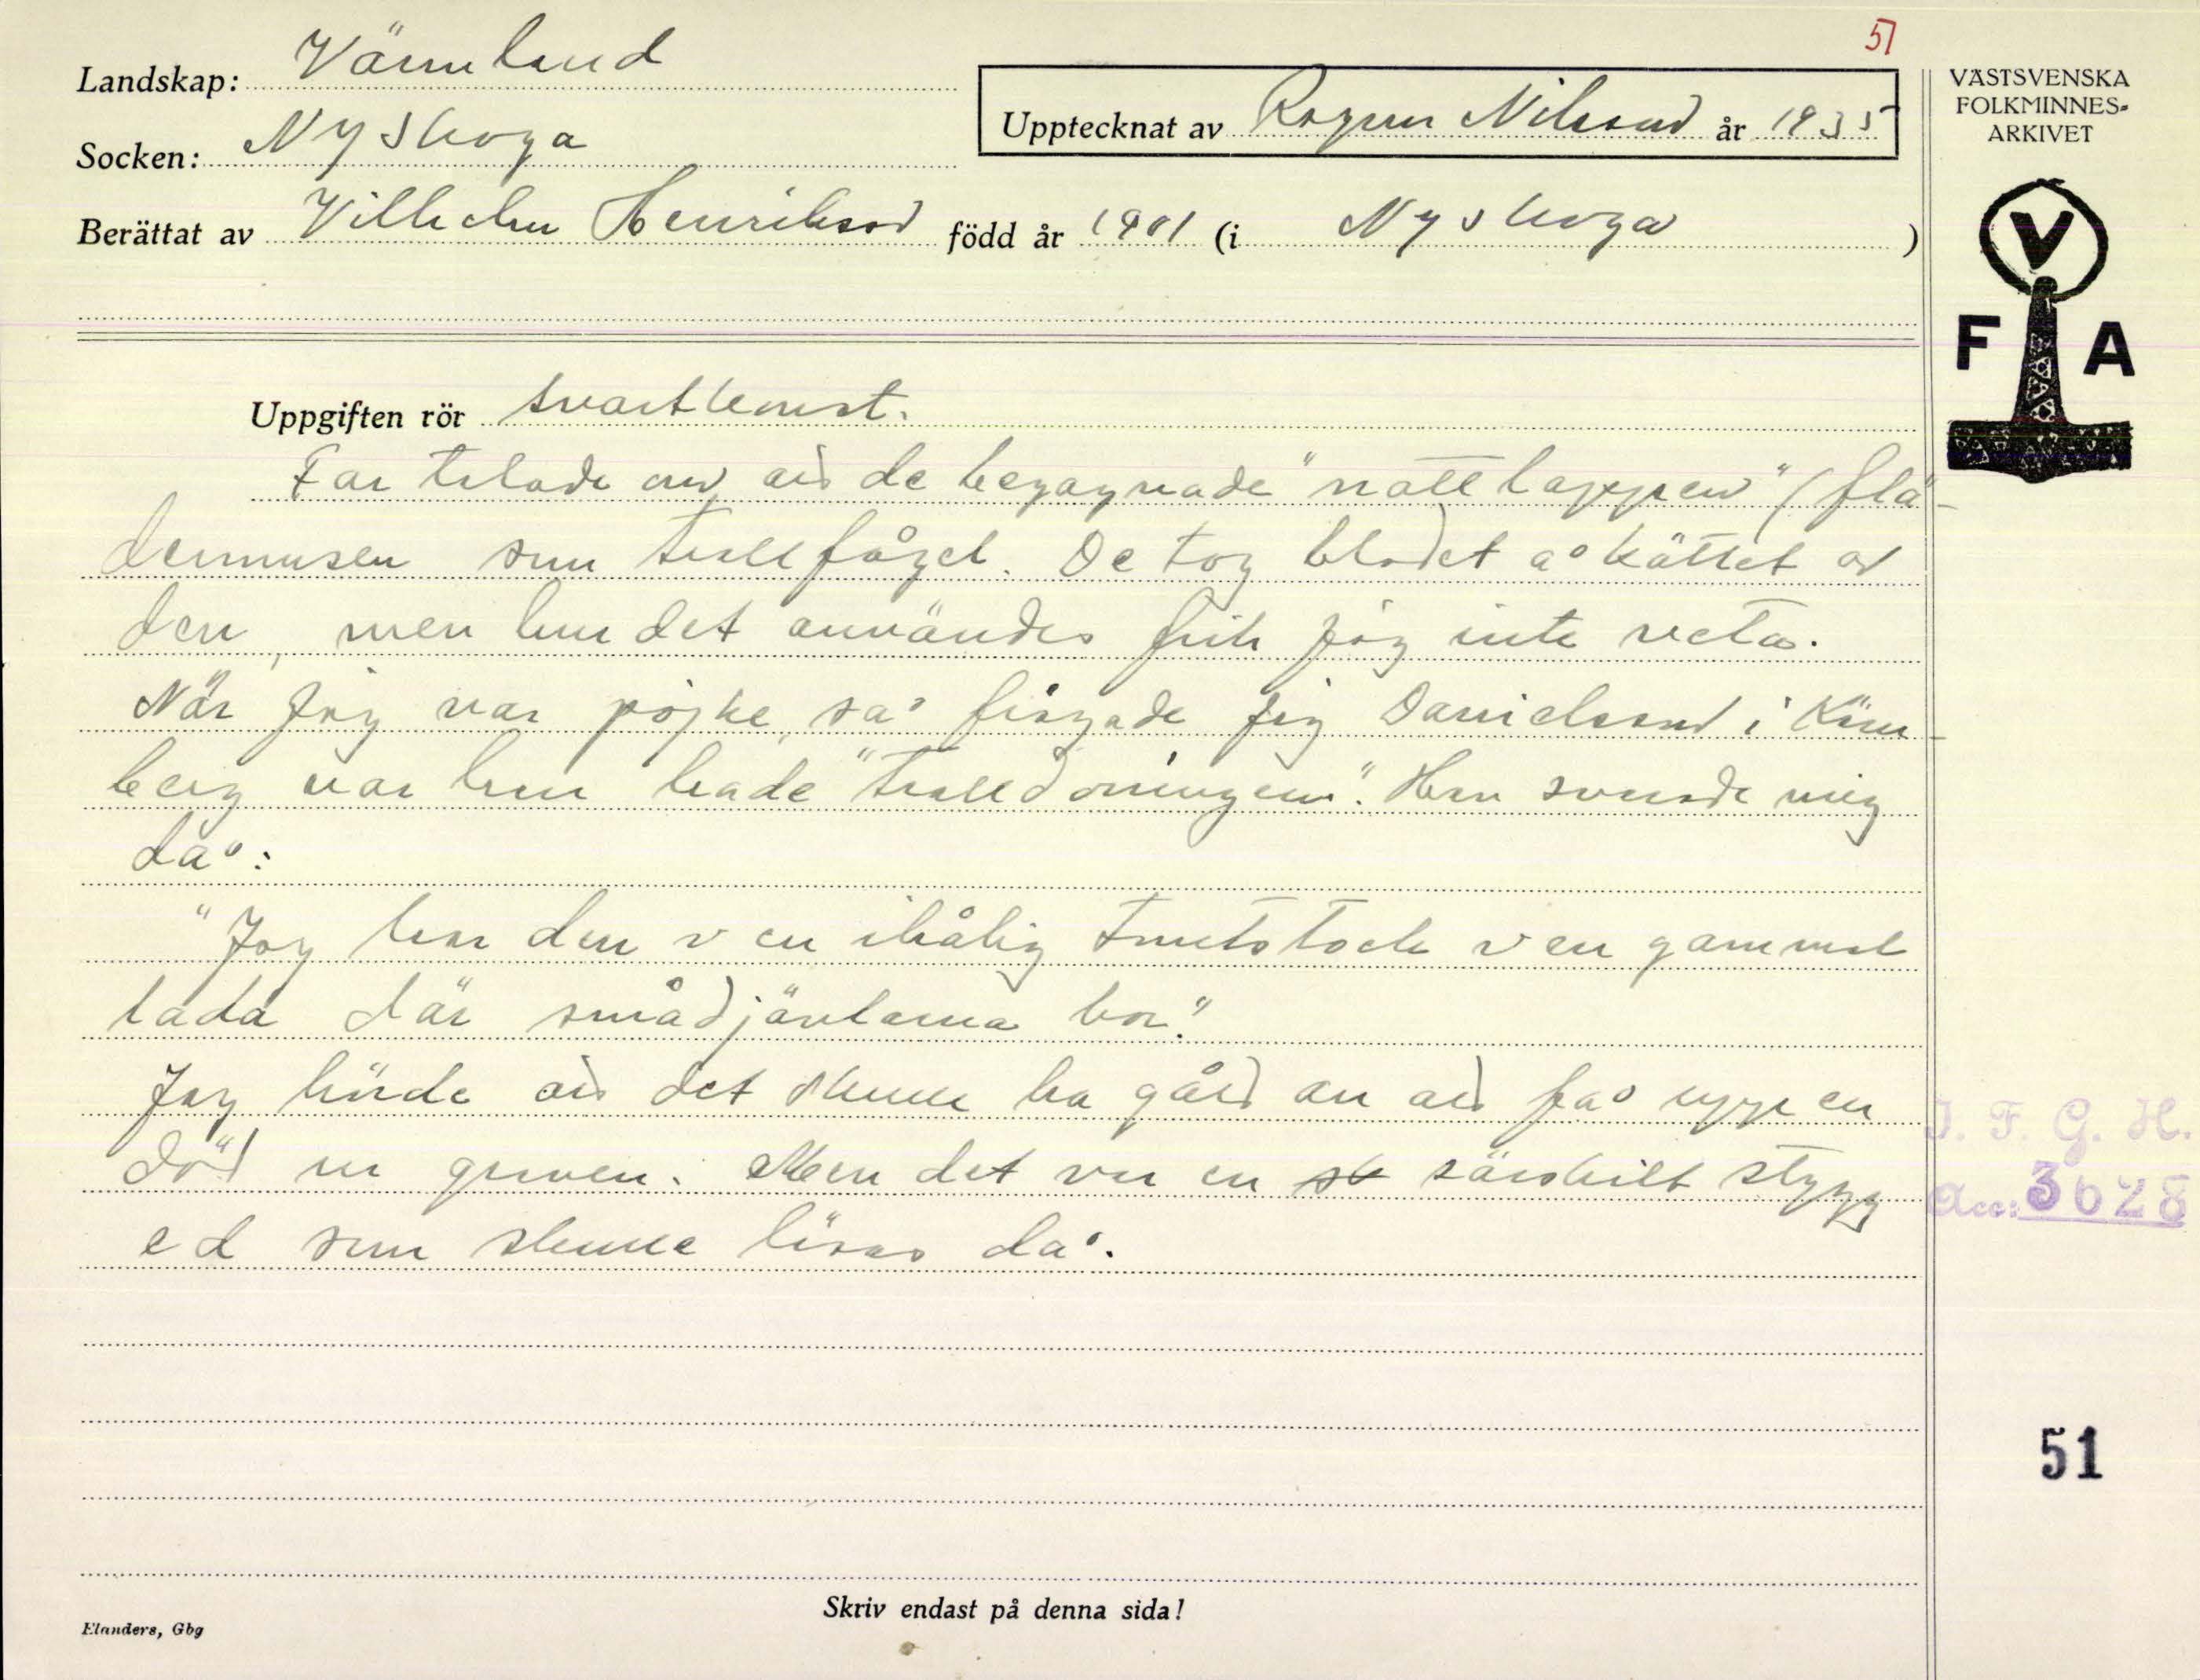 51
Landskap: Värmland
Socken: Nyskoga
Upptecknat av Ragnar Nilsson år 1935
Berättat av Vilhelm Henriksson född år 1901 (i Nyskoga)
VÄSTSVENSKA
FOLKMINNES-
ARKIVET
V
F A
Uppgiften rör svartkonst.
Far talade om att de begagnade "nattlappen" (flä-
dermusen som trollfågel. De tog blodet å köttet av
den, men hur det användes fick jag inte veta.
När jag var pojke, så frågade jag Danielsson i Kärr-
berg var han hade "trolldomingen". Han svarade mig
då:
"Jag har den v en ihålig timstock v en gammal
lada där smådjävlarna bor."
Jag hörde att det skulle ha gått an att få upp en
död ur graven. Men det var en sk särskilt stygg
ed som skulle läsas då.
I. F. G. H.
Acc: 3628
51
Skriv endast på denna sida!
Elanders, Gbg